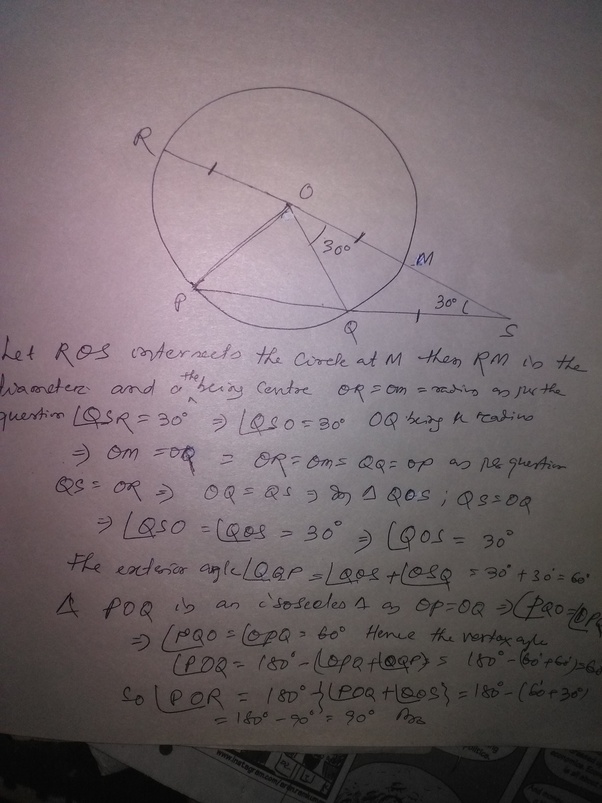 R
O
30°
M
P
Q
30°
S
Let ROS intersects the circle at M then RM is the
diameter and o the being centre OR = OM = radius as per the
question ∠QSR = 30° ⇒ ∠QSO = 30° OQ being radius
⇒ OM = OQ = OR = OM = OQ = OP as per question
QS = OR ⇒ OQ = QS ⇒ In Δ QOS ; QS = OQ
⇒ ∠QSO = ∠QOS = 30° ⇒ ∠QOS = 30°
The exterior angle ∠OQP = ∠QOS + ∠OSQ = 30° + 30° = 60°
Δ POQ is an isosceles Δ as OP = OQ ⇒ ∠PQO =
⇒ ∠PQO = ∠OPQ = 60° Hence the vertex angle
∠POQ = 180° - (∠OPQ + ∠OQP) = 180° - (60° + 60°) = 60
So ∠POR = 180° - {∠POQ + ∠QOS} = 180 - (60 + 30°)
= 180° - 90° = 90° Ans
www.instagram.com